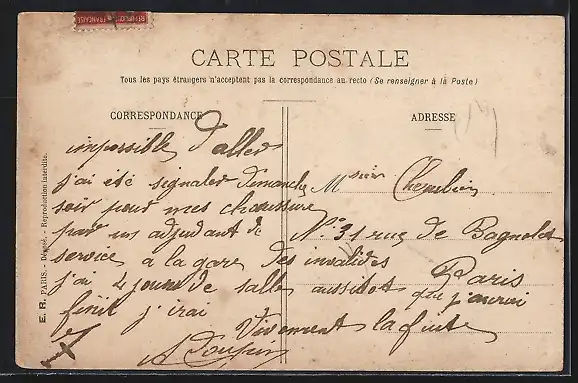 REPUBLIQUE FRANÇAISE
CARTE POSTALE
Tous les pays étrangers n'acceptent pas la correspondance au recto (Se renseigner à la Poste)
CORRESPONDANCE
impossible d'aller
j'ai été signaler dimanche
soir pour mes chaussure
par un adjudant de
service à la gare des invalides
j'ai 4 jours de salle aussitot que j'aurai
finit j'irai
Vivement la fuite
ADRESSE
Msieur
No 31 rue de Bagnolet
Paris
E. R. PARIS. - Déposé. - Reproduction interdite.